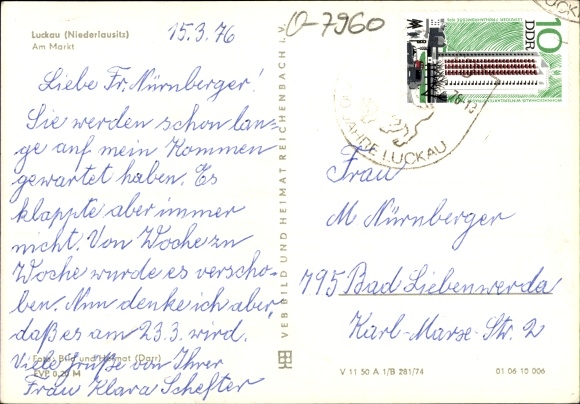 Luckau (Niederlausitz)
Am Markt
15.3.76
O-7960
10
DDR
Liebe Fr. Nürnberger!
Sie werden schon lan-
ge auf mein Kommen
gewartet haben. Es
klappte aber immer
nicht. Von Woche zu
Woche wurde es verscho-
ben. Nun denke ich aber,
daß es am 23.3. wird.
Viele Grüße von Ihrer
Frau Klara Schefter
Foto: Bild und Heimat (Darr)
EVP 0,20 M
VEB BILD UND HEIMAT REICHENBACH I. V.
JAHRE LUCKAU
Frau
M Nürnberger
795 Bad Liebenwerda
Karl-Marx-Str. 2
V 11 50 A 1/B 281/74
01 06 10 006